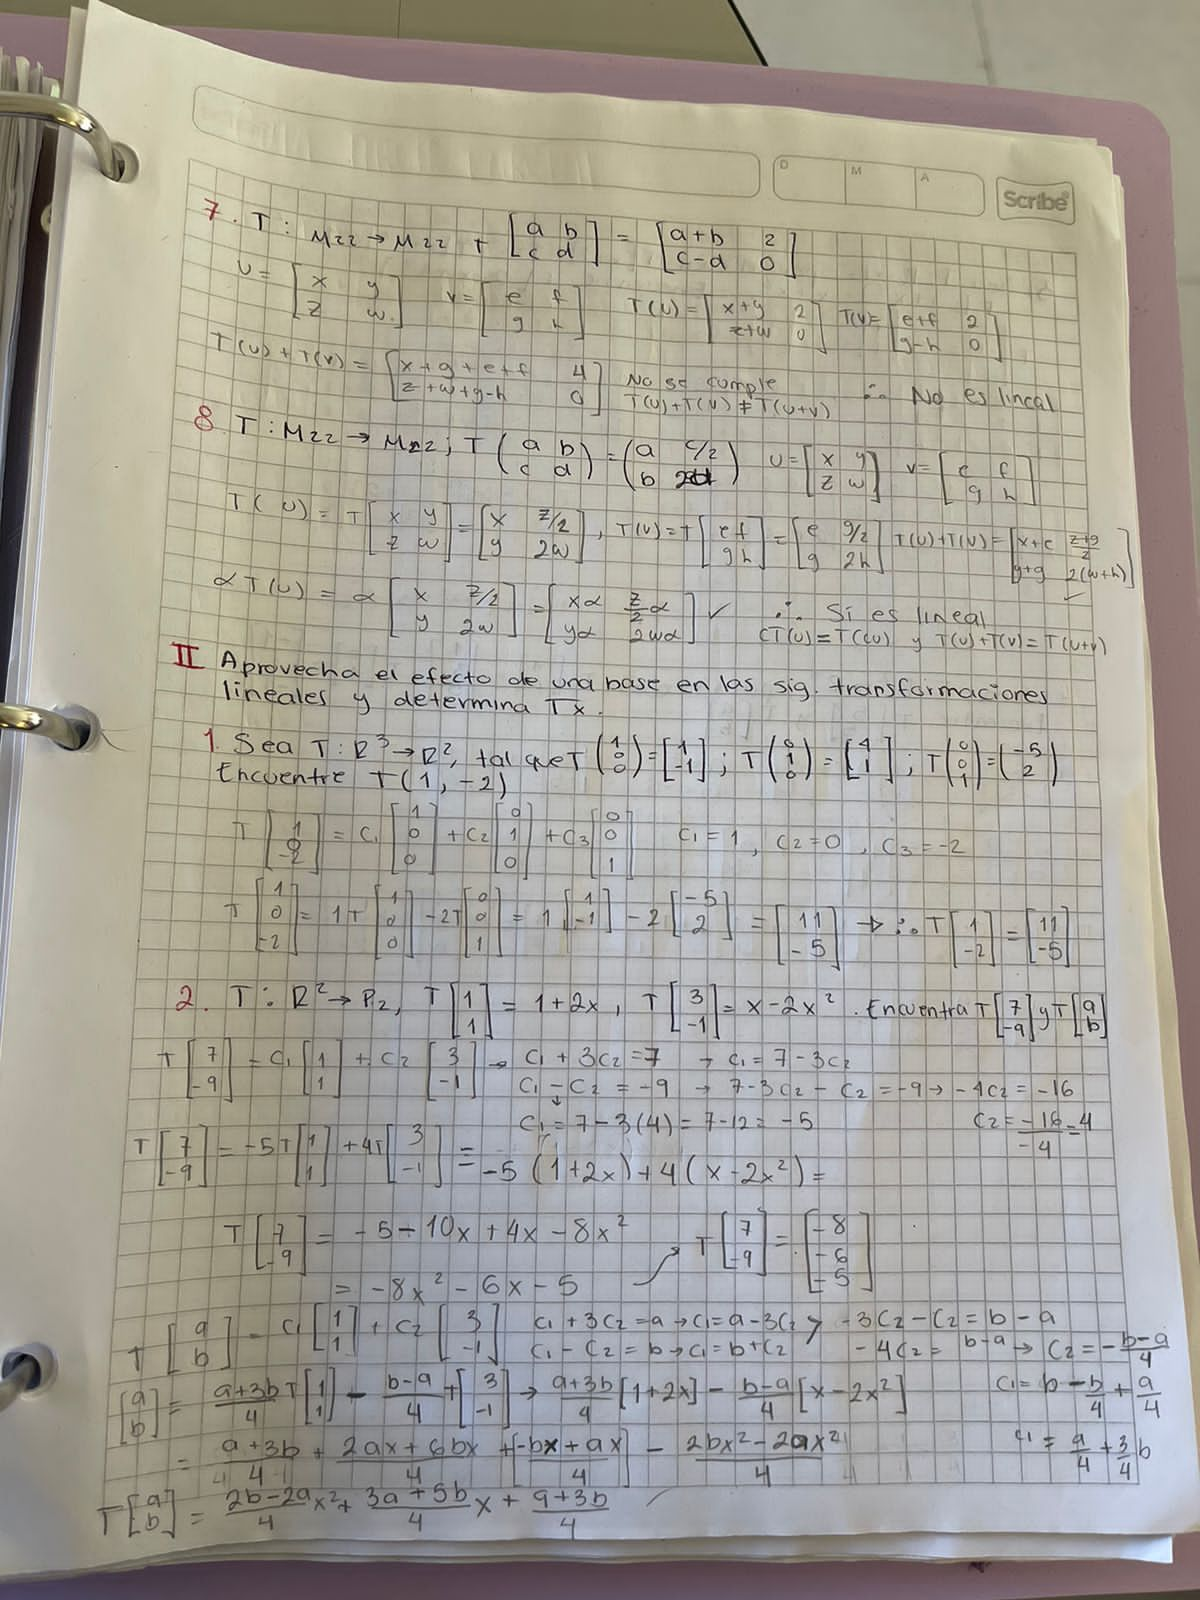 D M A
Scribe
7. T: M22 → M22 T [a b; c d] = [a+b 2; c-d 0]
U = [x y; z w] V = [e f; g h] T(U) = [x+y 2; z+w 0] T(V) = [e+f 2; g-h 0]
T(U)+T(V) = [x+y+e+f 4; z+w+g-h 0] No se cumple T(U)+T(V) ≠ T(U+V) ∴ No es lineal
8. T: M22 → M22; T (a b; c d) = (a c/2; b 2d) U = [x y; z w] V = [e f; g h]
T(U) = T [x y; z w] = [x z/2; y 2w], T(V) = T [e f; g h] = [e g/2; g 2h] T(U)+T(V) = [x+e z+g/2; y+g 2(w+h)] ✓
α T(U) = α [x z/2; y 2w] = [xα z/2 α; yα 2wα] ✓ ∴ Sí es lineal
CT(U) = T(CU) y T(U)+T(V) = T(U+V)
II Aprovecha el efecto de una base en las sig. transformaciones
lineales y determina Tx.
1. Sea T: R³ → R², tal que T (1; 0; 0) = [1; -1]; T (0; 1; 0) = [4; 1]; T (0; 0; 1) = (-5; 2)
Encuentre T(1, -2)
T [1; 0; -2] = C1 [1; 0; 0] + C2 [0; 1; 0] + C3 [0; 0; 1] C1 = 1, C2 = 0, C3 = -2
T [1; 0; -2] = 1T [1; 0; 0] - 2T [0; 0; 1] = 1 [1; -1] - 2 [-5; 2] = [11; -5] → ∴ T [1; -2] = [11; -5]
2. T: R² → P2, T [1; 1] = 1+2x, T [3; -1] = x-2x². Encuentra T [7; -9] y T [a; b]
T [7; -9] = C1 [1; 1] + C2 [3; -1] → C1 + 3C2 = 7 → C1 = 7-3C2
C1 - C2 = -9 → 7-3C2 - C2 = -9 → -4C2 = -16
C1 = 7-3(4) = 7-12 = -5 C2 = -16/-4 = 4
T [7; -9] = -5T [1; 1] + 4T [3; -1] = -5 (1+2x) + 4 (x-2x²) =
T [7; -9] = -5 - 10x + 4x - 8x² T [7; -9] = [-8; -6; -5]
= -8x² - 6x - 5
T [a; b] = C1 [1; 1] + C2 [3; -1] C1 + 3C2 = a → C1 = a-3C2 > -3C2 - C2 = b - a
C1 - C2 = b → C1 = b+C2 -4C2 = b-a → C2 = -b-a/4
[a; b] = a+3b/4 T [1; 1] - b-a/4 + [3; -1] → a+3b/4 [1+2x] - b-a/4 [x-2x²] C1 = b - b/4 + a/4
= a+3b/4 + 2ax+6bx/4 + [-bx+ax/4] - 2bx²-2ax²/4 C1 = a/4 + 3/4 b
T [a; b] = 2b-2a/4 x² + 3a+5b/4 x + a+3b/4